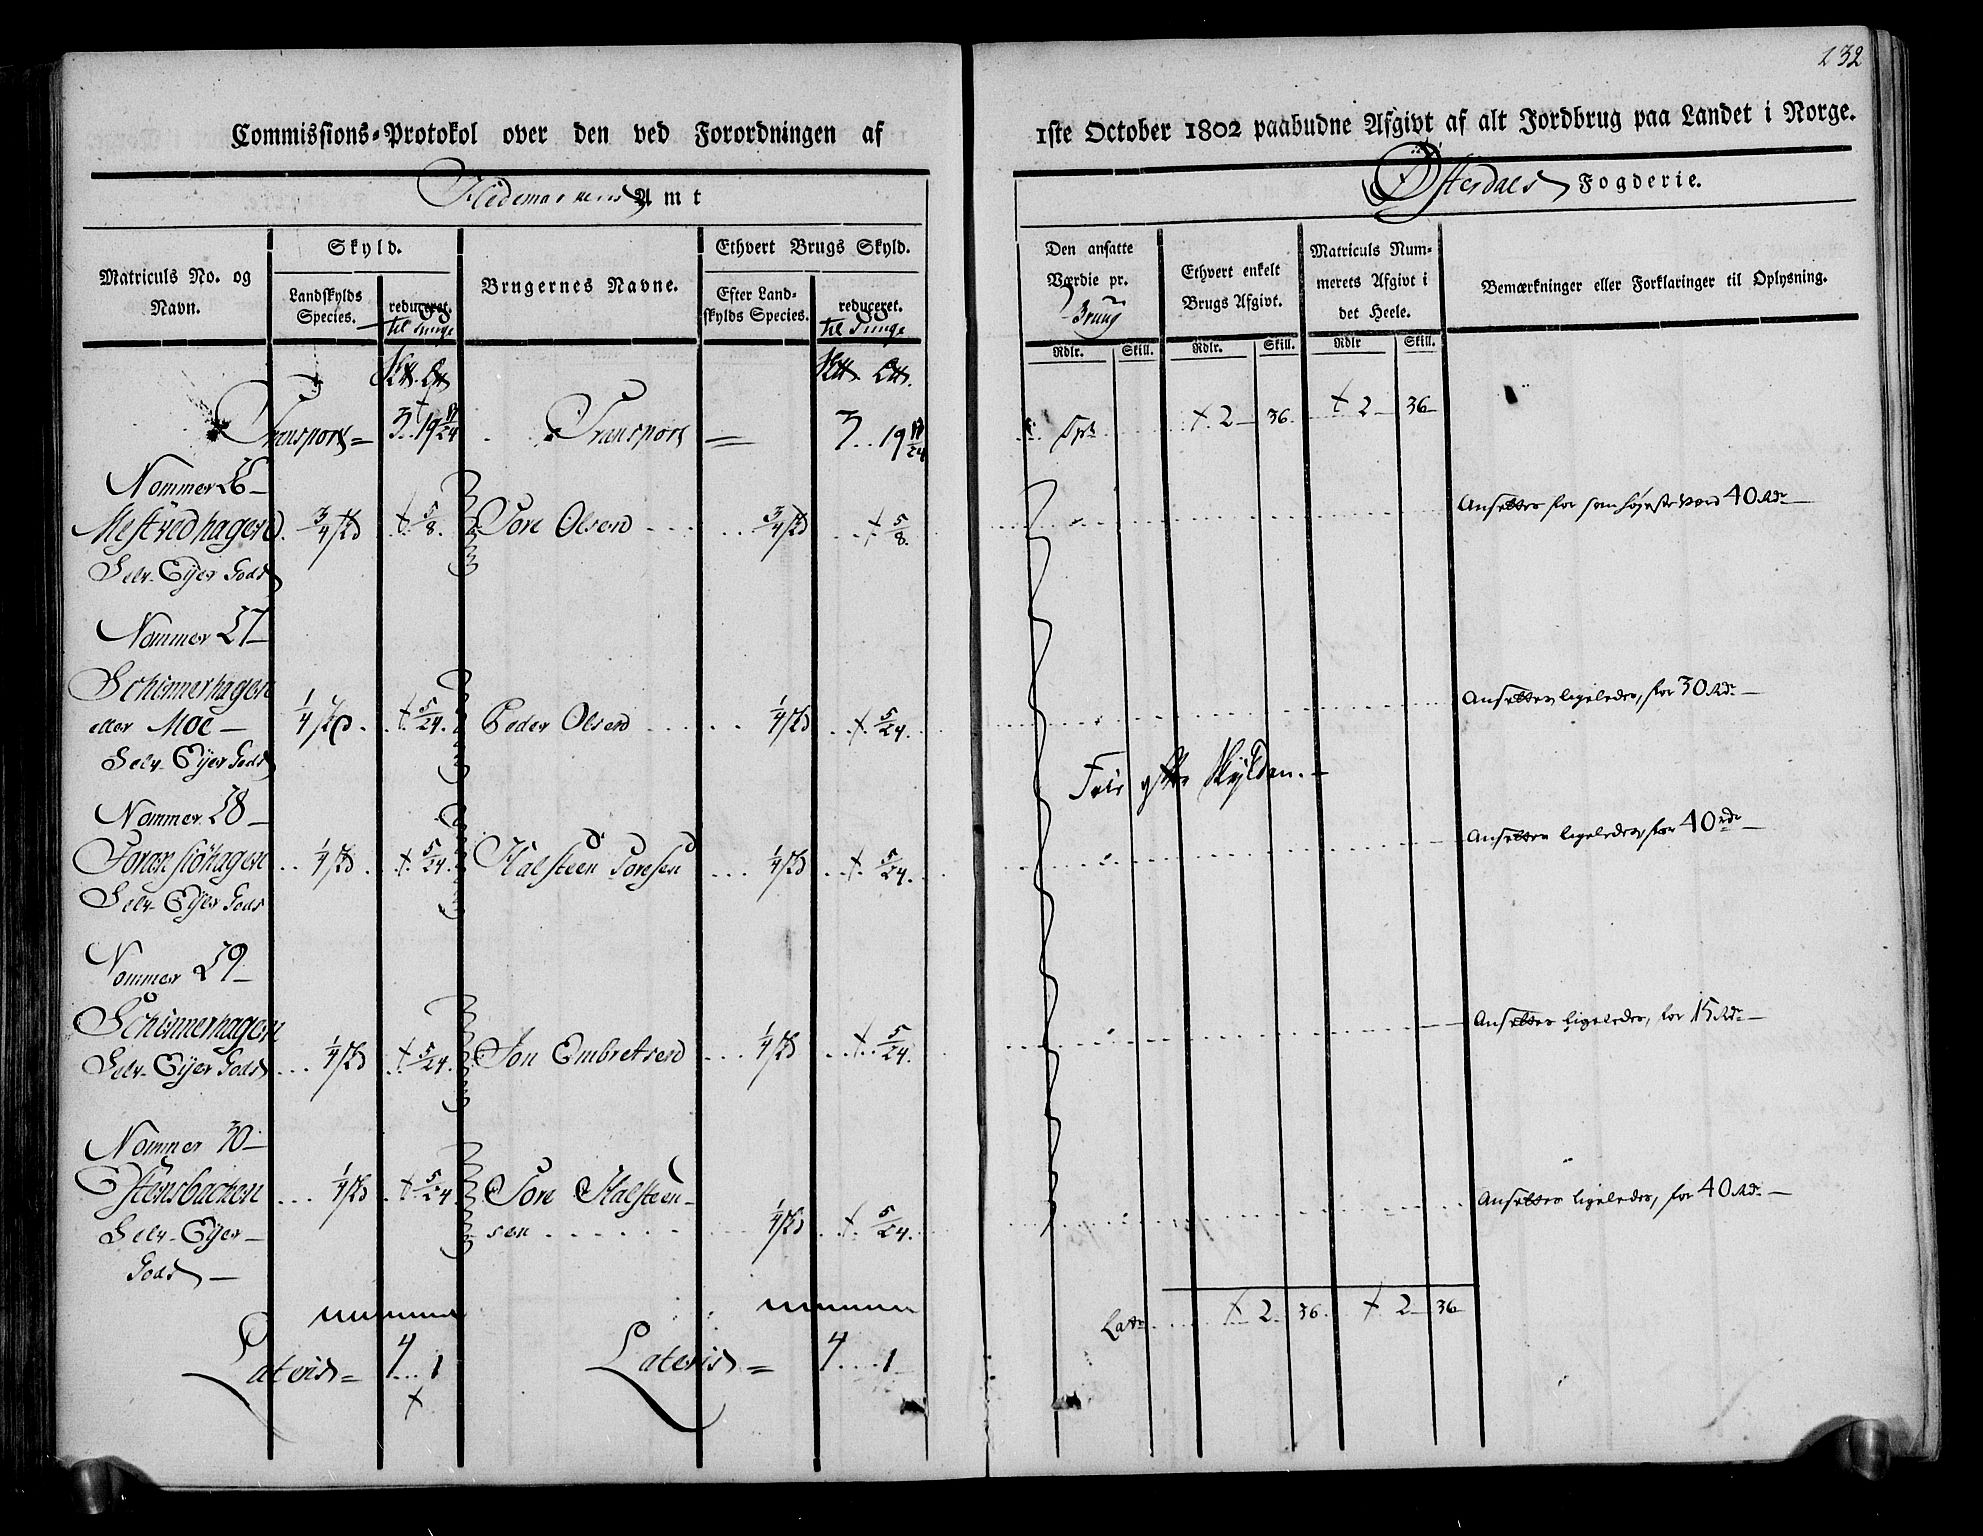 132
Commissions=Protokol over den ved Forordningen af
1ste October 1802 paabudne Afgivt af alt Jordbrug paa Landet i Norge.
Hedemarkens Amt
Østerdals Fogderie.
Matriculs No. og Navn.
Skyld.
Landskylds Species.
reduceret.
til Tunge
Brugernes Navne.
Ethvert Brugs Skyld.
Efter Landskylds Species.
reduceret.
til Tunge
Den ansatte Værdie pr. Bruug
Ethvert enkelt Brugs Afgivt.
Matriculs Nummerets Afgivt i det Heele.
Bemærkninger eller Forklaringer til Oplysning.
Rdlr. Skill. Rdlr. Skill. Rdlr Skill.
Transport = 3 .. 19 17/24 Transport = 3 .. 19 17/24
Tpt 2 - 36. 2 - 36 -
Nommer 26 -
Mestvedhagen 3/4 5/8 Tore Olsen 3/4 5/8
Selv-Eijer Gods
Ansettes for 40 Rdr -
Nommer 27 -
Schønnerhagen
eller Moe - 1/4 5/24. Peder Olsen 1/4 5/24.
Selv-Eijer Gods
Ansettes ligeledes, for 30 Rdr -
Frie efter Skylden. -
Nommer 28 -
Toransjöhagen 1/4 5/24. Halsteen Toresen 1/4 5/24.
Selv-Eijer Gods
Ansettes ligeledes, for 40 rdr -
Nommer 29 -
Schønnerhagen
Selv-Eijer Gods 1/4 5/24. Jon Embretsen 1/4 5/24.
Ansettes ligeledes, for 15 Rdr -
Nommer 30 -
Østensbachen 1/4 5/24 Tore Halsteen-
Selv-Eijer - sen 1/4 5/24.
Gods -
Ansettes ligeledes, for 40 Rdr -
Lateris = 4 ... 1 Lateris = 4 .... 1
Latr 2 - 36. 2 - 36 -